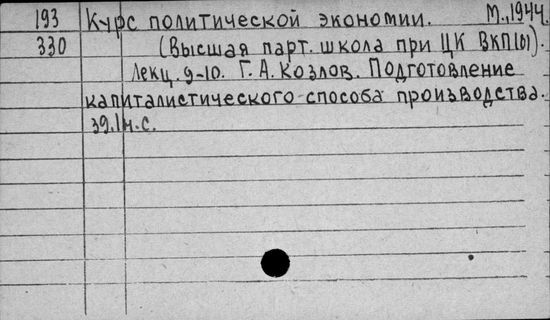 193 Курс политической экономии. М., 1944.
330 (Высшая парт. школа при ЦК ВКП(б)).
Лекц. 9-10. Г. А. Козлов. Подготовление
капиталистического способа производства.
39.1 н. с.